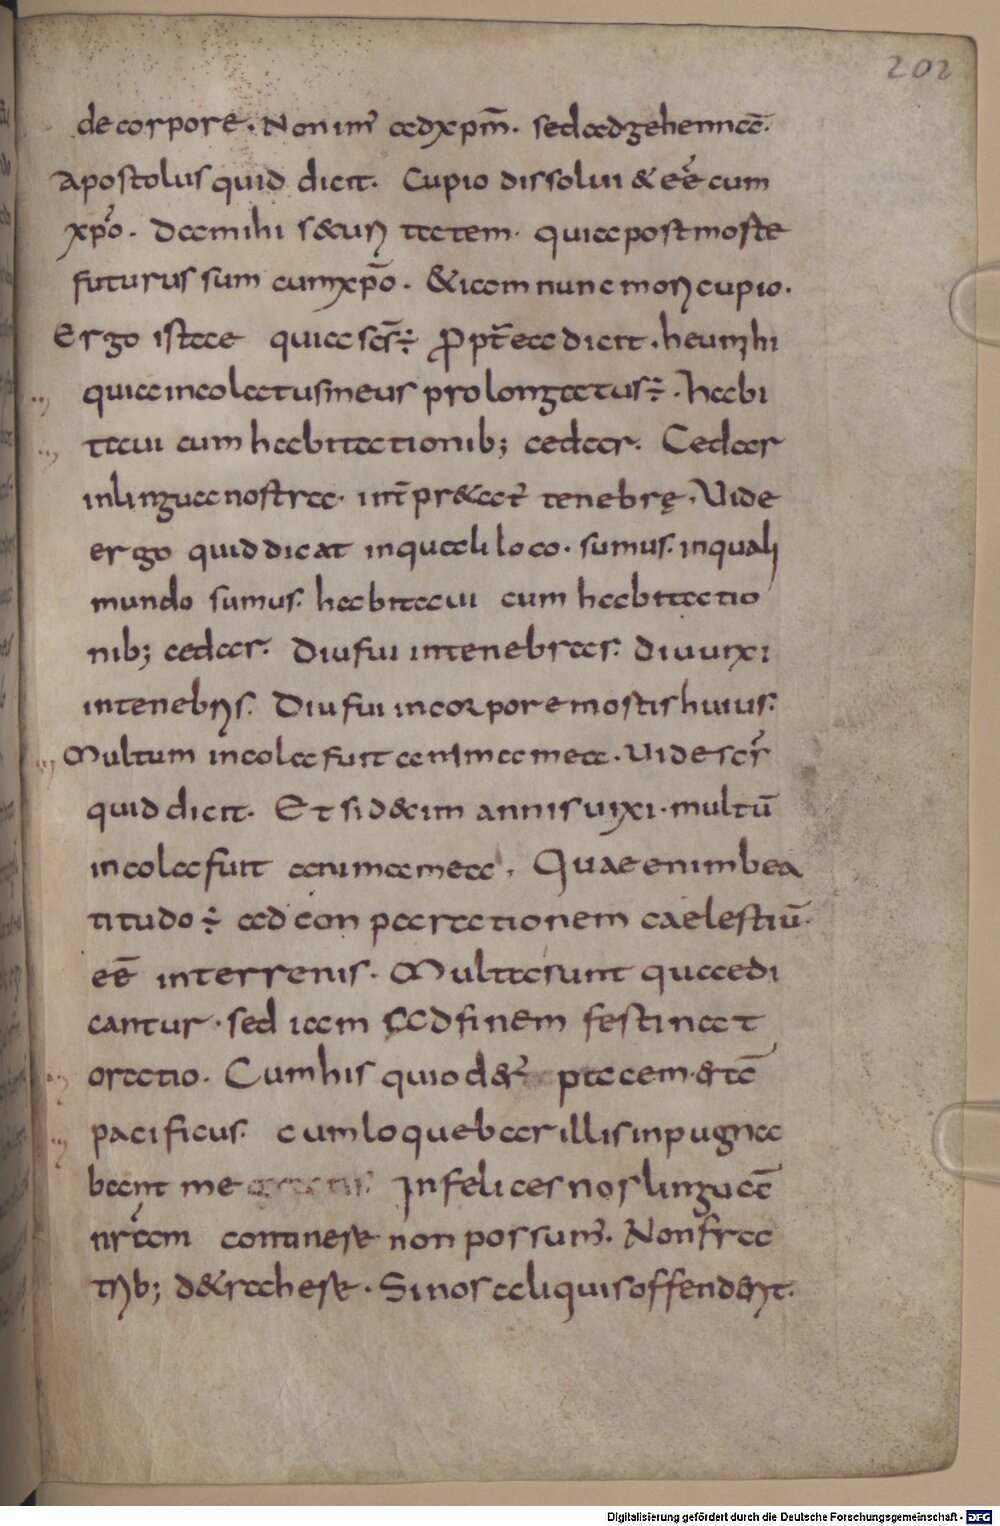 202
de corpore. Non im̄ ad xpm̄. sed ad gehennā.
Apostolus quid dicit. Cupio dissolui & eē cum
xp̄o. Da mihi securitatem. quia post morte
futurus sum cum xp̄o. & iam nunc mori cupio.
Ergo ista quia scs̄ ÷ propt̄ea dicit. heu mihi
quia incolatus meus prolongatus ÷. habi
taui cum habitationib; cedar. Cedar
in lingua nostra. int̄pr&at̄ tenebrę. Vide
ergo quid dicat in quali loco. sumus. in quali
mundo sumus. habitaui cum habitatio
nib; cedar. Diu fui in tenebras. diu uixi
in tenebris. Diu fui in corpore mortis huius.
Multum incola fuit anima mea. Vide scr̄
quid dicit. Et si d&im annis uixi. multū
incola fuit anima mea. Quae enim bea
titudo ÷ ad conparationem caelestiū.
eē in terrenis. Multa sunt quae di
cantur. sed iam ad finem festinat
oratio. Cum his qui od&r̄ pacem. & tā
pacificus. cum loquebar illis inpugna
bant me gratis. Infelices nos linguā
nr̄am continere non possum̄. Non fra
trib; d&rahere. Si nos aliquis offenderit.
Digitalisierung gefördert durch die Deutsche Forschungsgemeinschaft - DFG